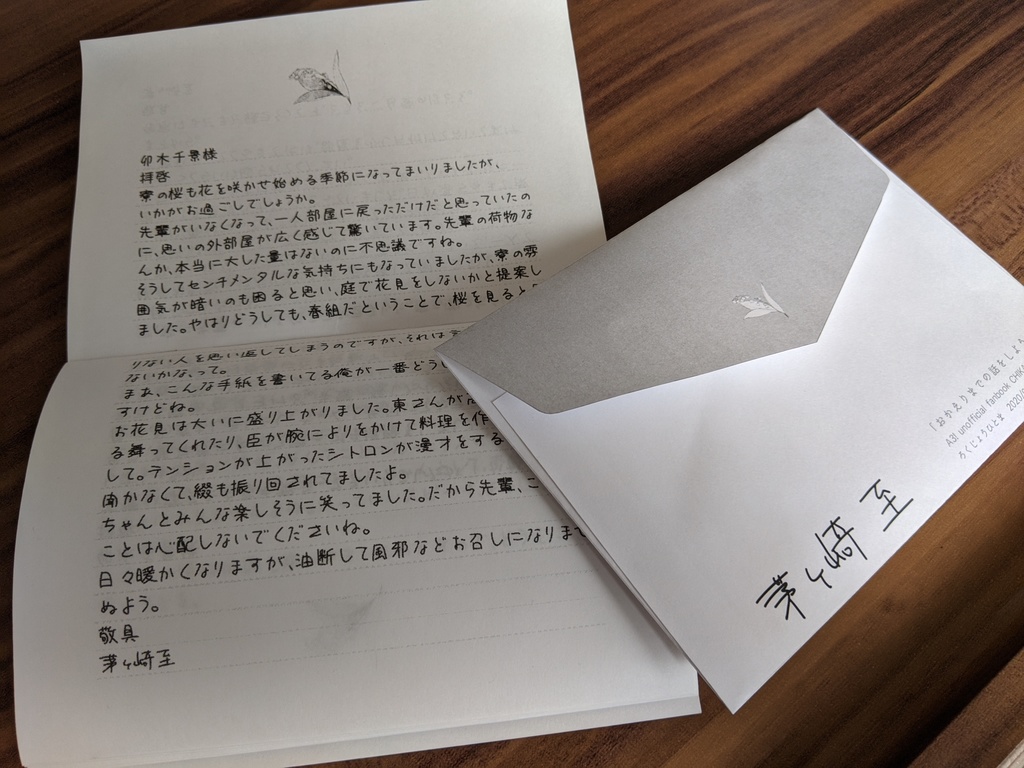 卯木千景様
拝啓
寮の桜も花を咲かせ始める季節になってまいりましたが、
いかがお過ごしでしょうか。
先輩がいなくなって、一人部屋に戻っただけだと思っていたの
に、思いの外部屋が広く感じて驚いています。先輩の荷物な
んか、本当に大した量はないのに不思議ですね。
そうしてセンチメンタルな気持ちにもなっていましたが、寮の雰
囲気が暗いのも困ると思い、庭で花見をしないかと提案し
ました。やはりどうしても、春組だということで、桜を見ると
りない人を思い返してしまうのですが、それは
ないかな、って。
まあ、こんな手紙を書いてる俺が一番どう
すけどね。
お花見は大いに盛り上がりました。東さんが
る舞ってくれたり、臣が腕によりをかけて料理を作
して。テンションが上がったシトロンが漫才をする
聞かなくて、綴も振り回されてましたよ。
ちゃんとみんな楽しそうに笑ってました。だから先輩、こ
ことは心配しないでくださいね。
日々暖かくなりますが、油断して風邪などお召しになりませ
ぬよう。
敬具
茅ヶ崎至
「おかえりまでの話をしよう
A3! unofficial fanbook
ろくじょうひとま 2020/
茅ヶ崎 至